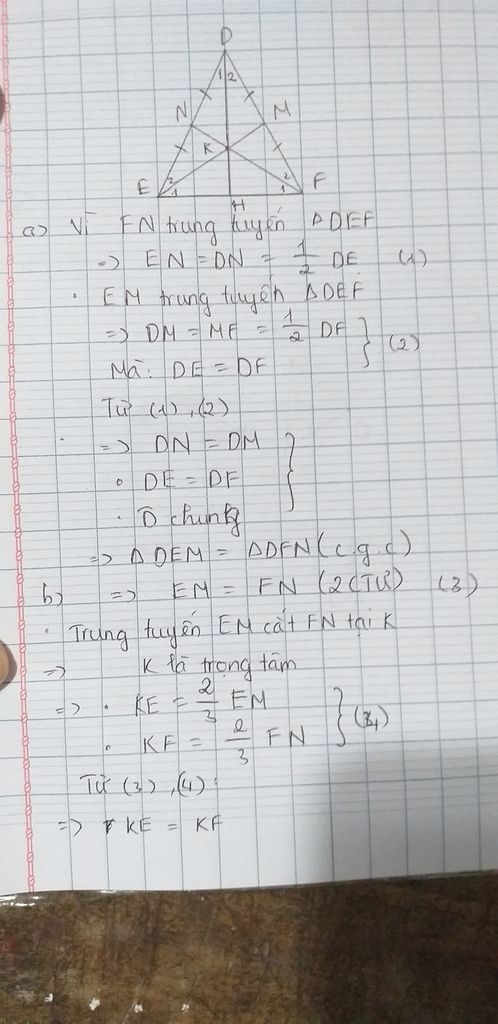 D
1 2
N M
K
E 2 1 2 1 F
H
a) Vì FN trung tuyến Δ DEF
=> EN = DN = 1/2 DE (1)
. EM trung tuyến Δ DEF
=> DM = MF = 1/2 DF } (2)
Mà: DE = DF
Từ (1), (2)
=> DN = DM }
. DE = DF
. D chung
=> Δ DEM = Δ DFN (c.g.c)
b) => EM = FN (2 CTƯ) (3)
. Trung tuyến EM cắt FN tại K
=> K là trọng tâm
=> . KE = 2/3 EM
. KF = 2/3 FN } (4)
Từ (3), (4):
=> KE = KF